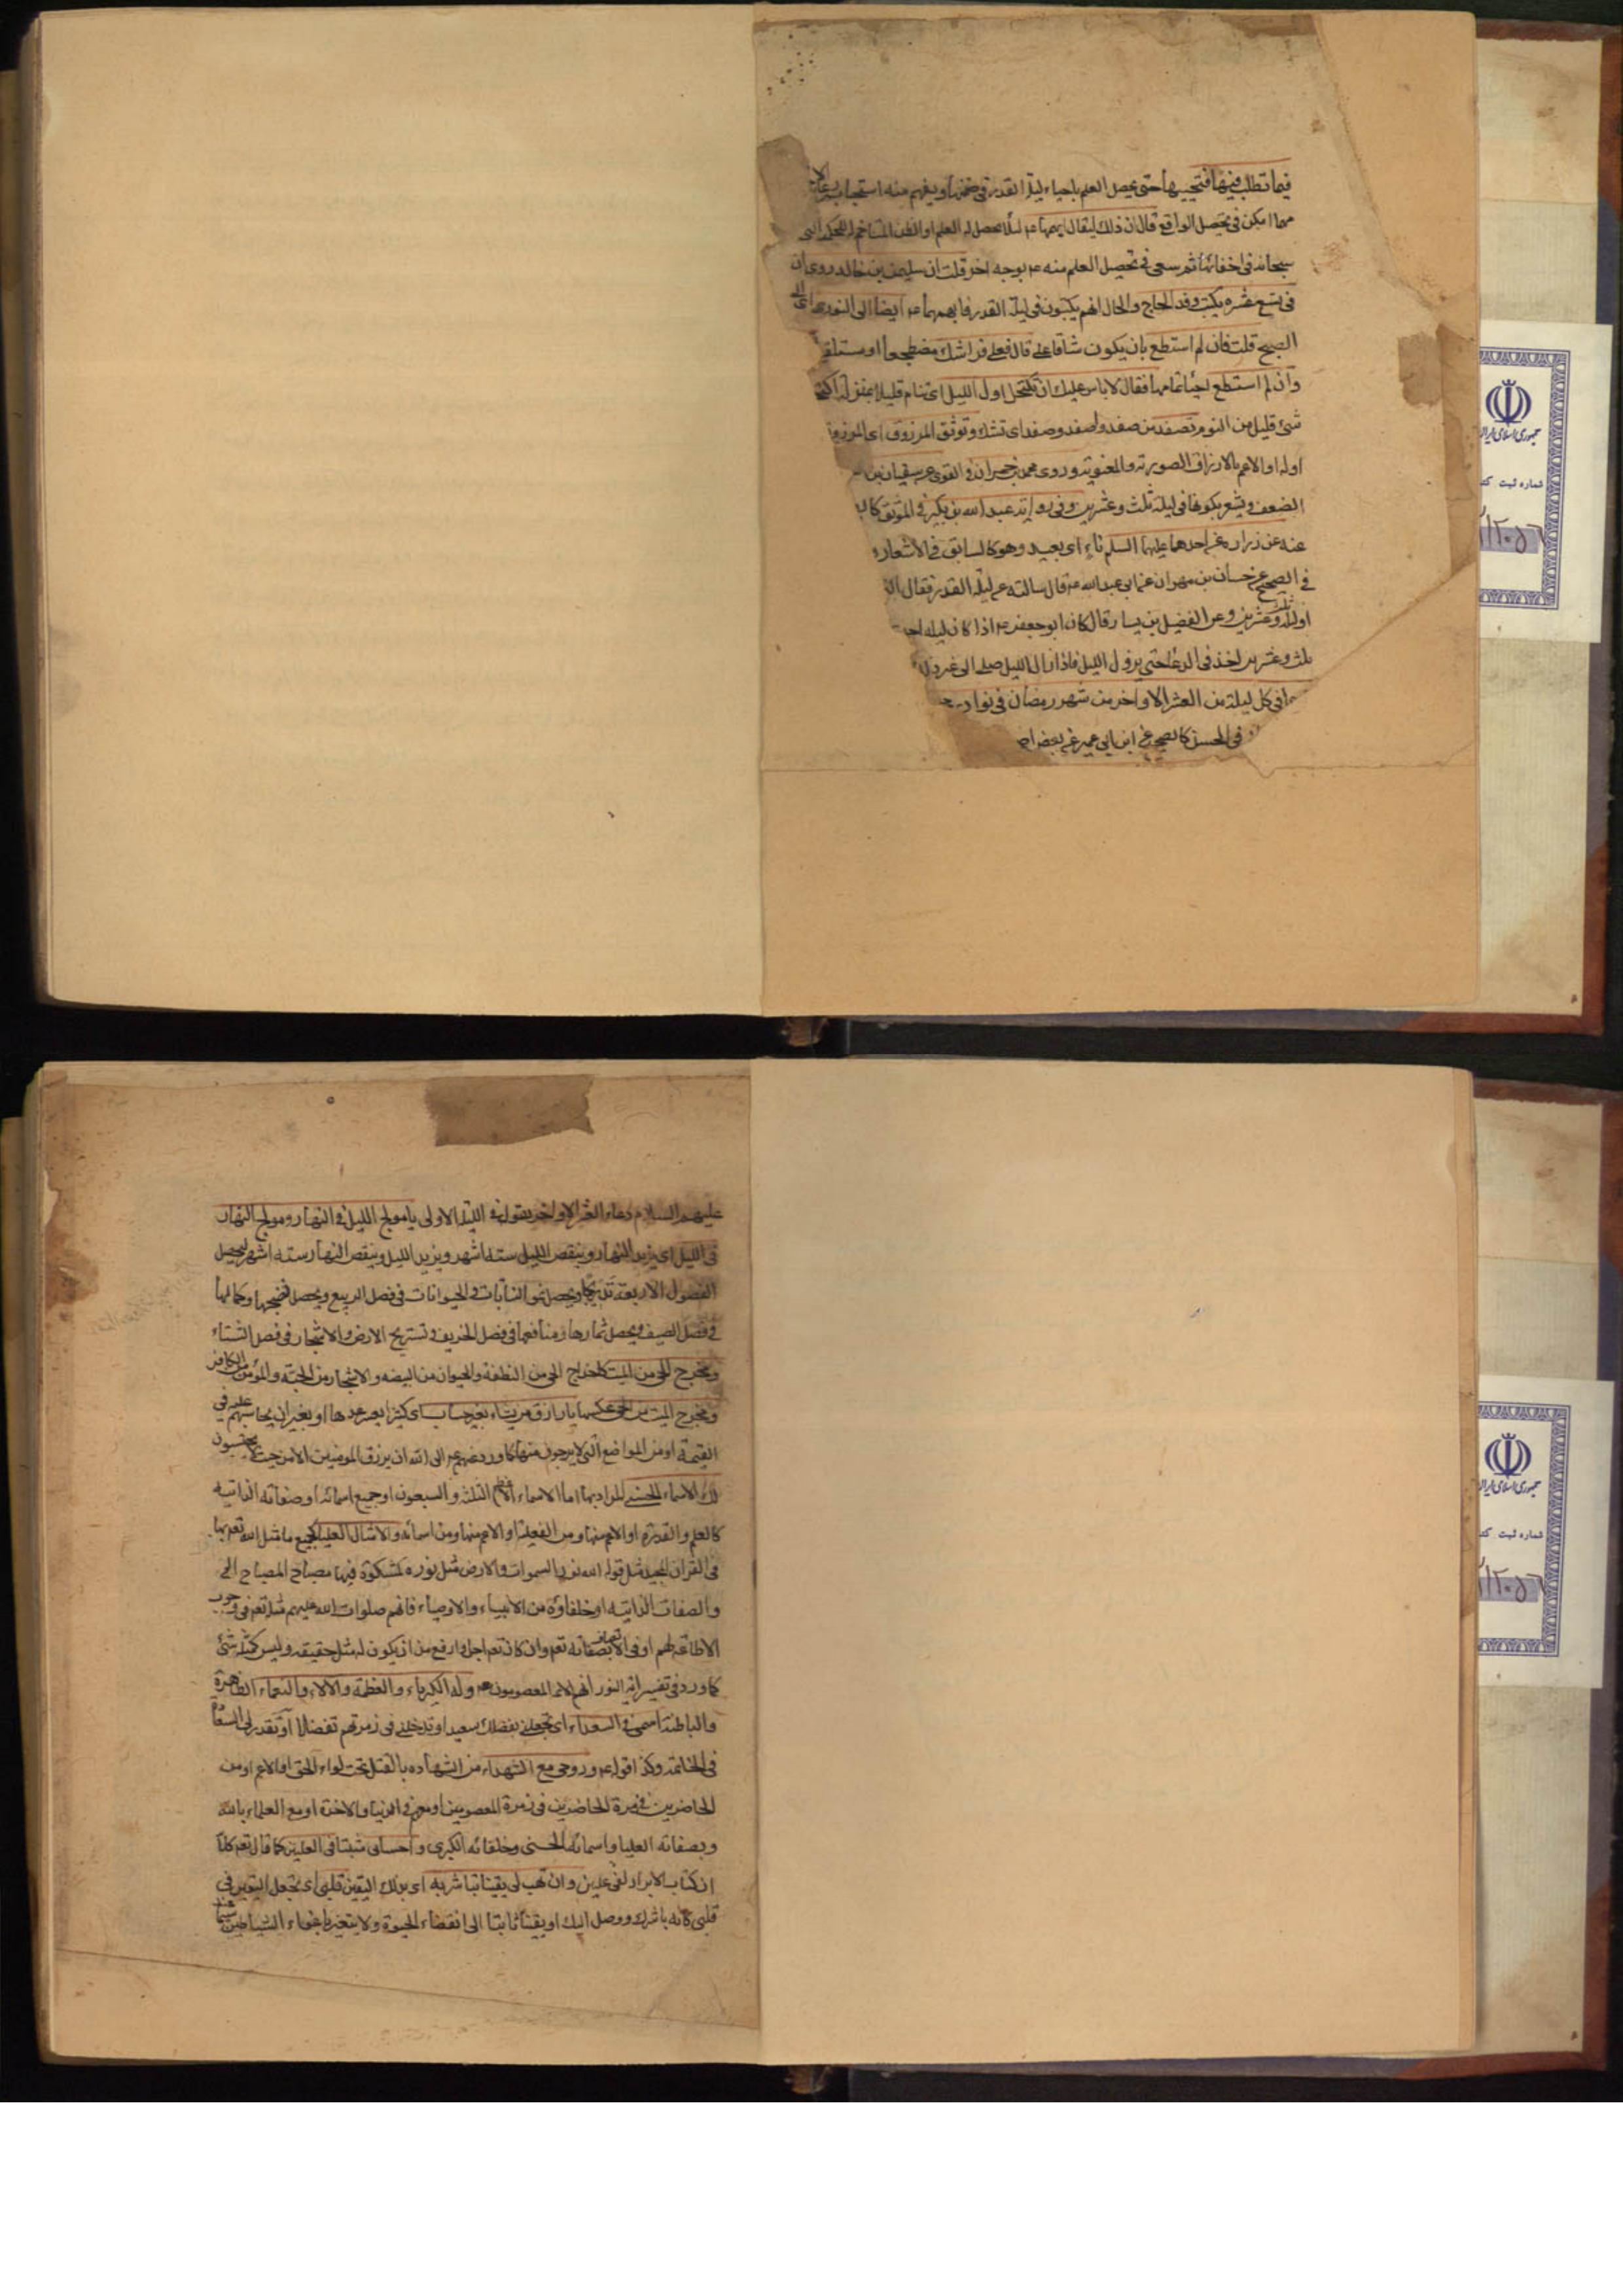 فيما تطلب فيها فتحييها حتى يحصل العلم باحياء ليلة القدر في ضمنها ويفهم منه استحباب
مهما امكن في تحصيل الواقع قال ان ذلك ليقال ابهمها ع لئلا يحصل له العلم او الظن المتاخم
سبحانه في اخفائها ثم سعى في تحصيل العلم منه ع بوجه اخر قلت ان سليمن بن خالد روى ان
في تسع عشره يكتب وفد الحاج والحال انهم يكتبون في ليلة القدر فابهمها ع ايضا الى النور اى الى
الصبح قلت فان لم استطع بان يكون شاقا على قال فعلى فراشك مضطجعا او مستلقيا
وان لم استطع احيائها تمامها فقال لا باس عليك ان تكتحل اول الليل اى تنام قليلا بمنزلة
شئ قليل من النوم تصفد من صفد واصفد وصفد اى تشد وتوثق المرزوق اى
اوله او الاعم بالارزاق الصوريه والمعنويه وروى محمد بن حمران في القوى عن سفيان بن
الضعف ويشعر بكونها في ليلة ثلث وعشرين وفي روايه عبد الله بن بكير في الموثق
عنه عن زراره عن احدهما عليهما السلم ناء اى بعيد وهو كالسابق في الاشعار
في الصحيح عن حسان بن مهران عن ابي عبد الله ع قال سالته عن ليلة القدر فقال
او ليلة ثلث وعشرين وعن الفضيل بن يسار قال كان ابو جعفر ع اذا كان ليله
ثلث وعشرين اخذ في الدعا حتى يزول الليل فاذا زال الليل صلى الى
في كل ليلة من العشر الاواخر من شهر رمضان في نوادر
في الحسن كالصحيح عن ابن ابي عمير عن بعض
جمهوری اسلامی ایران
شماره ثبت
عليهم السلام دعاء العشر الاواخر يقول في الليلة الاولى يا مولج الليل في النهار ومولج النهار
في الليل اى يزيد النهار وينقص الليل سته اشهر ويزيد الليل وينقص النهار سته اشهر ليحصل
الفصول الاربعة تدريجا ويحصل نمو النباتات والحيوانات في فصل الربيع ويحصل نضجها وكمالها
في فصل الصيف ويحصل ثمارها ومنافعها في فصل الخريف وتستريح الارض والاشجار في فصل الشتاء
ومخرج الحي من الميت كاخراج الحي من النطفة والحيوان من البيضه والاشجار من الحبة والمؤمن من الكافر
ومخرج الميت من الحي عكسها يا رازق من يشاء بغير حساب اى كثيرا يعسر عدها او بغير ان يحاسبهم عليه في
القيمة او من المواضع التي لا يرجون منها كما ورد عنهم ع ابى الله ان يرزق المومنين الا من حيث لا يحتسبون
لك الاسماء الحسنى المراد بها اما الاسماء العظام الثلثة والسبعون او جميع اسمائه او صفاته الذاتية
كالعلم والقدرة او الاعم منها ومن الفعلية او الاعم منها ومن اسمائه والامثال العليا جميع ما مثل الله تع بها
في القران المجيد مثل قوله الله نور السموات والارض مثل نوره كمشكوة فيها مصباح المصباح الخ
والصفات الذاتيه او خلفاؤه من الانبياء والاوصياء فانهم صلوات الله عليهم مثله تع في وجوب
الاطاعه لهم او في الاتصاف بصفاته تع وان كان تع اجل وارفع من ان يكون له مثل حقيقه وليس كمثله شئ
كما ورد في تفسير اية النور انهم الائمة المعصومون ع وله الكبرياء والعظمة والالاء والنعماء الظاهرة
والباطنة اسمى في السعداء اى تجعلني بفضلك سعيدا وتدخلني في زمرتهم تفضلا او تقدر لي السعادة
في الخاتمه وكذا قوله ع وروحي مع الشهداء من الشهاده بالقتل تحت لواء الحق او الاعم او من
الحاضرين في زمرة الحاضرين في زمرة المعصومين او معهم في الدنيا والاخرة او مع العلماء بالله
وبصفاته العليا واسمائه الحسنى وخلفائه الكبرى واحساني مثبتا في العليين كما قال تع كلا
ان كتاب الابرار لفي عليين وان تهب لي يقينا تباشر به اى بذلك اليقين قلبي اى تجعل اليقين في
قلبي كانه باشرك ووصل اليك او يقينا ثابتا الى انقضاء الحيوة ولا يتغير باغواء الشياطين سيما
جمهوری اسلامی ایران
شماره ثبت